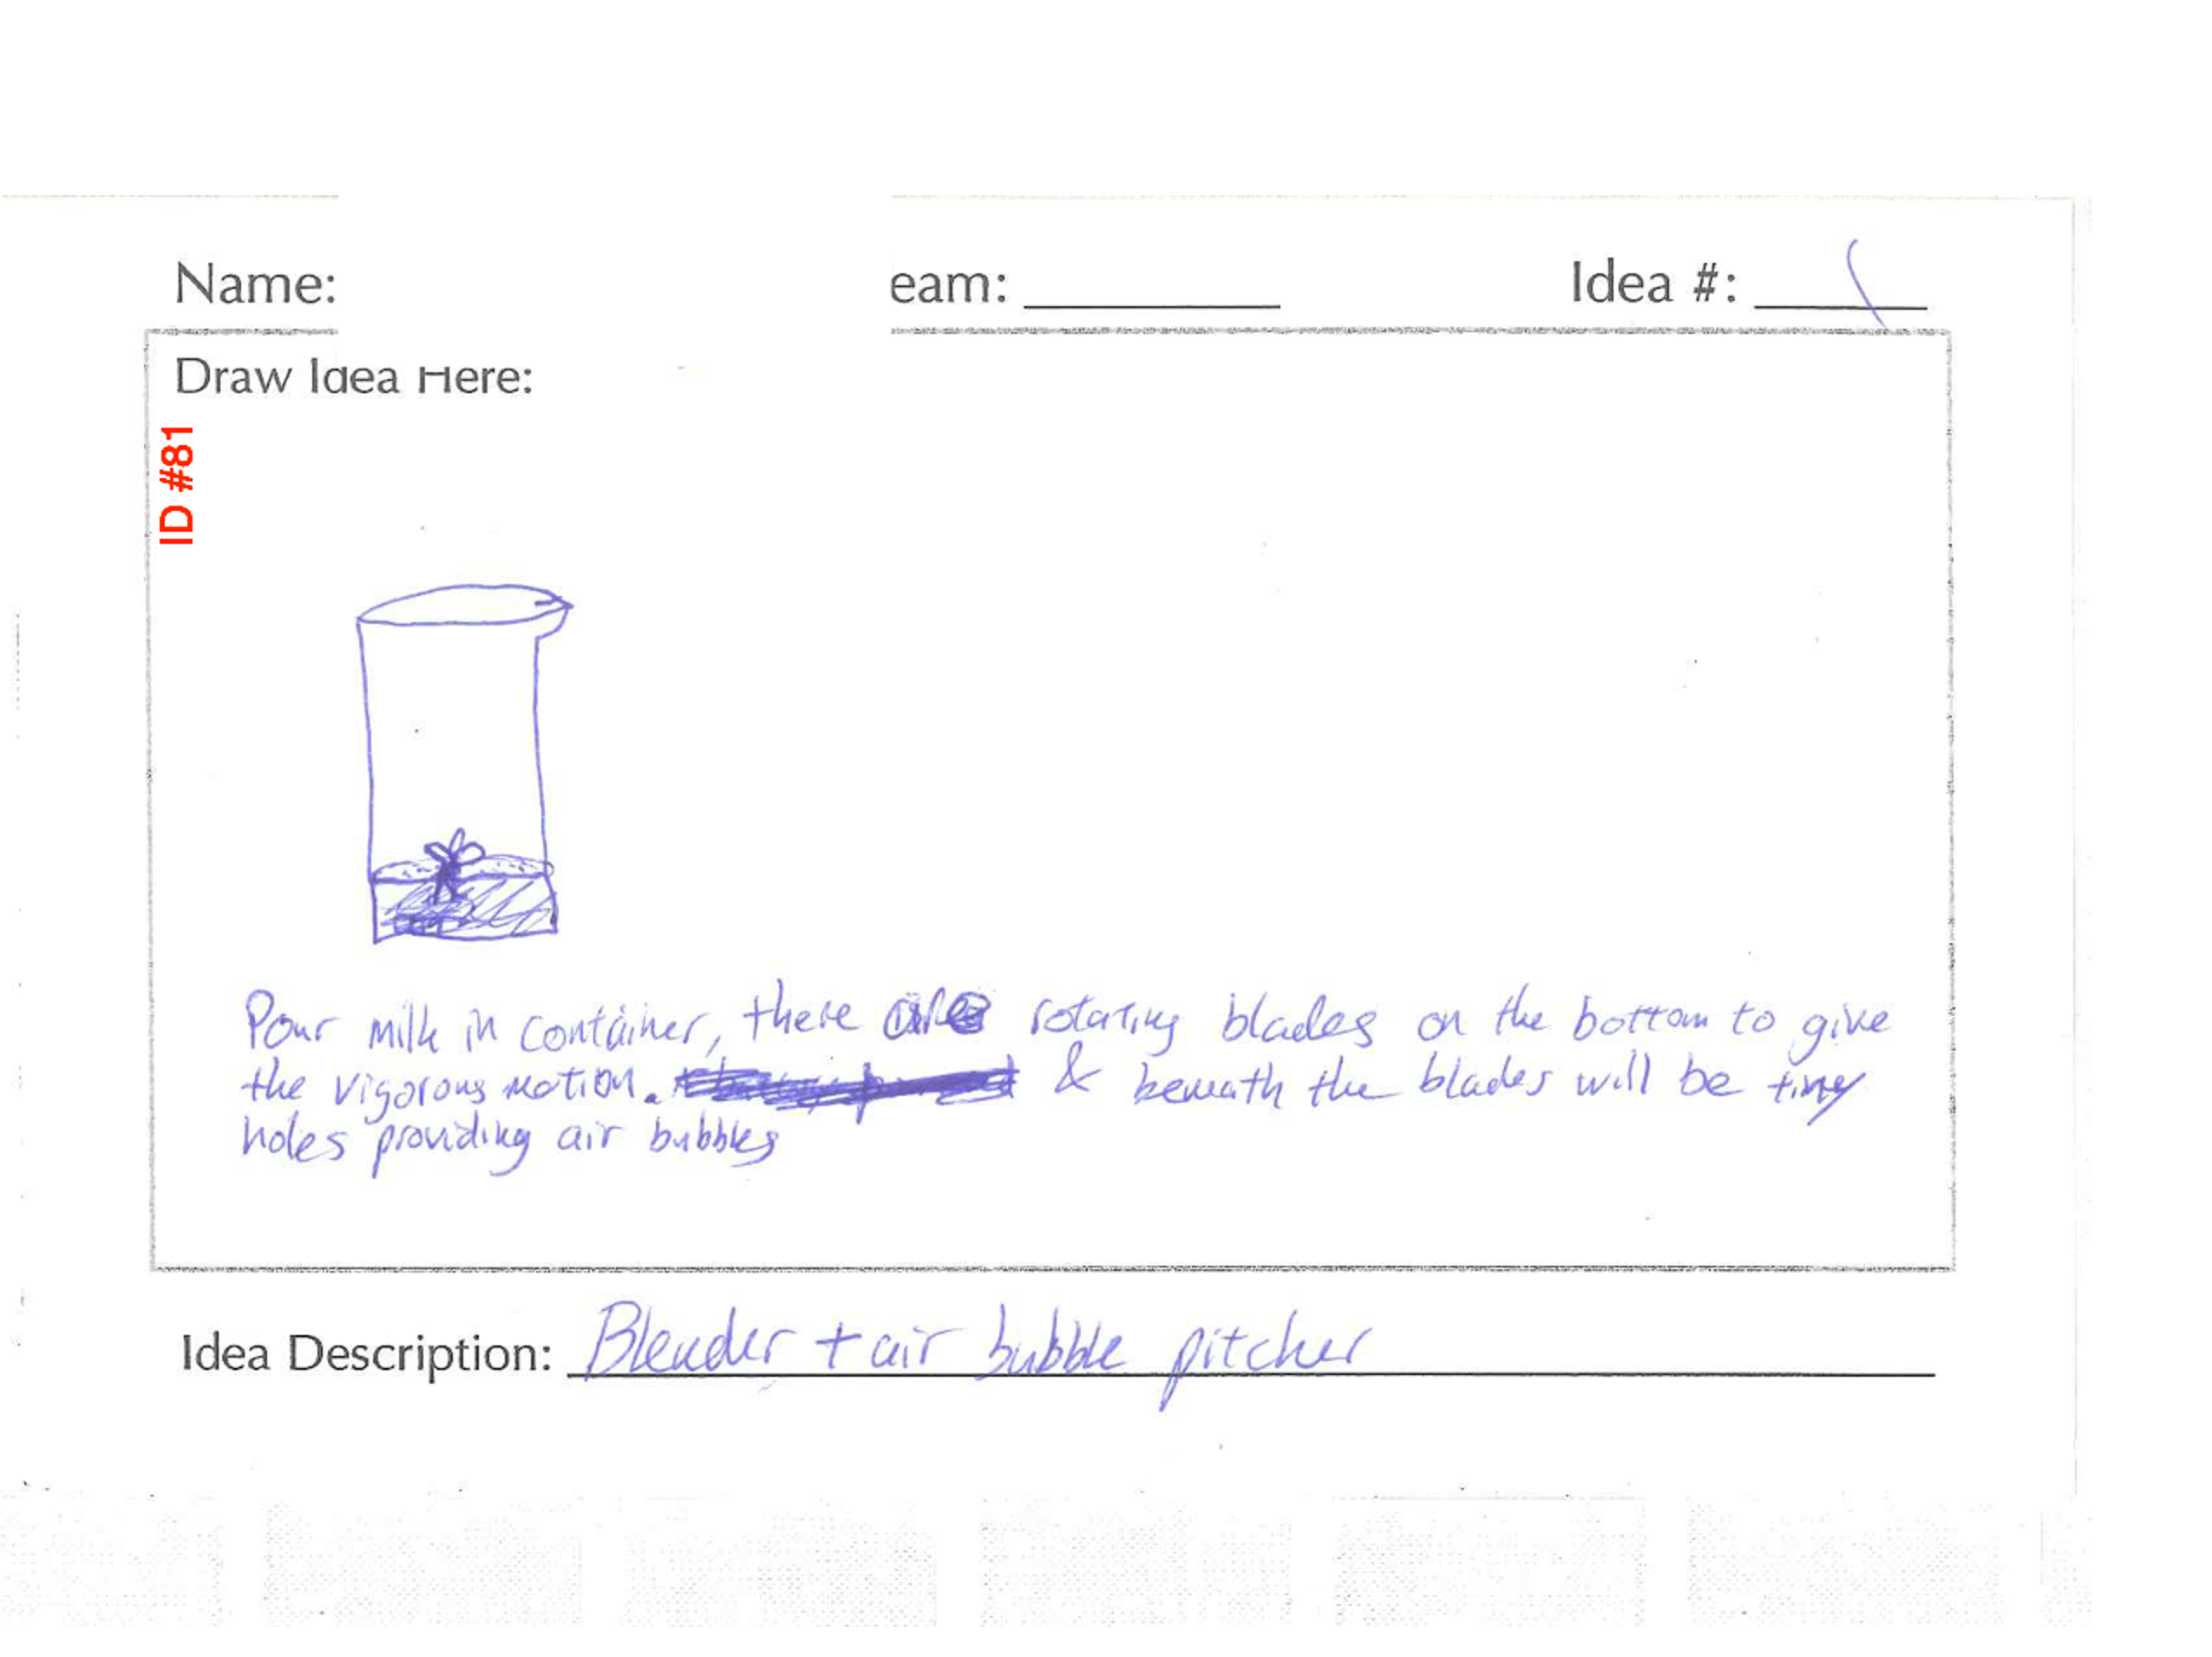 Name:
eam:
Idea #:
Draw Idea Here:
ID #81
Pour milk in container, there are rotating blades on the bottom to give
the vigorous motion. & beneath the blades will be tiny
holes providing air bubbles
Idea Description: Blender + air bubble pitcher